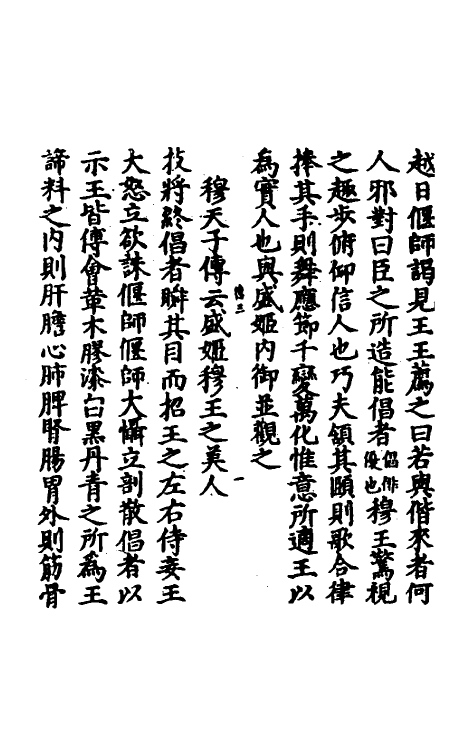 越日偃師謁見王王薦之曰若與偕來者何
人邪對曰臣之所造能倡者倡俳優也穆王驚視
之趣步俯仰信人也巧夫頷其頤則歌合律
捧其手則舞應節千變萬化惟意所適王以
為實人也與盛姬内御並觀之
穆天子傳云盛姬穆王之美人
技將終倡者瞬其目而招王之左右侍妾王
大怒立欲誅偃師偃師大懾立剖散倡者以
示王皆傅會革木膠漆白黑丹青之所為王
諦料之内則肝膽心肺脾腎腸胃外則筋骨